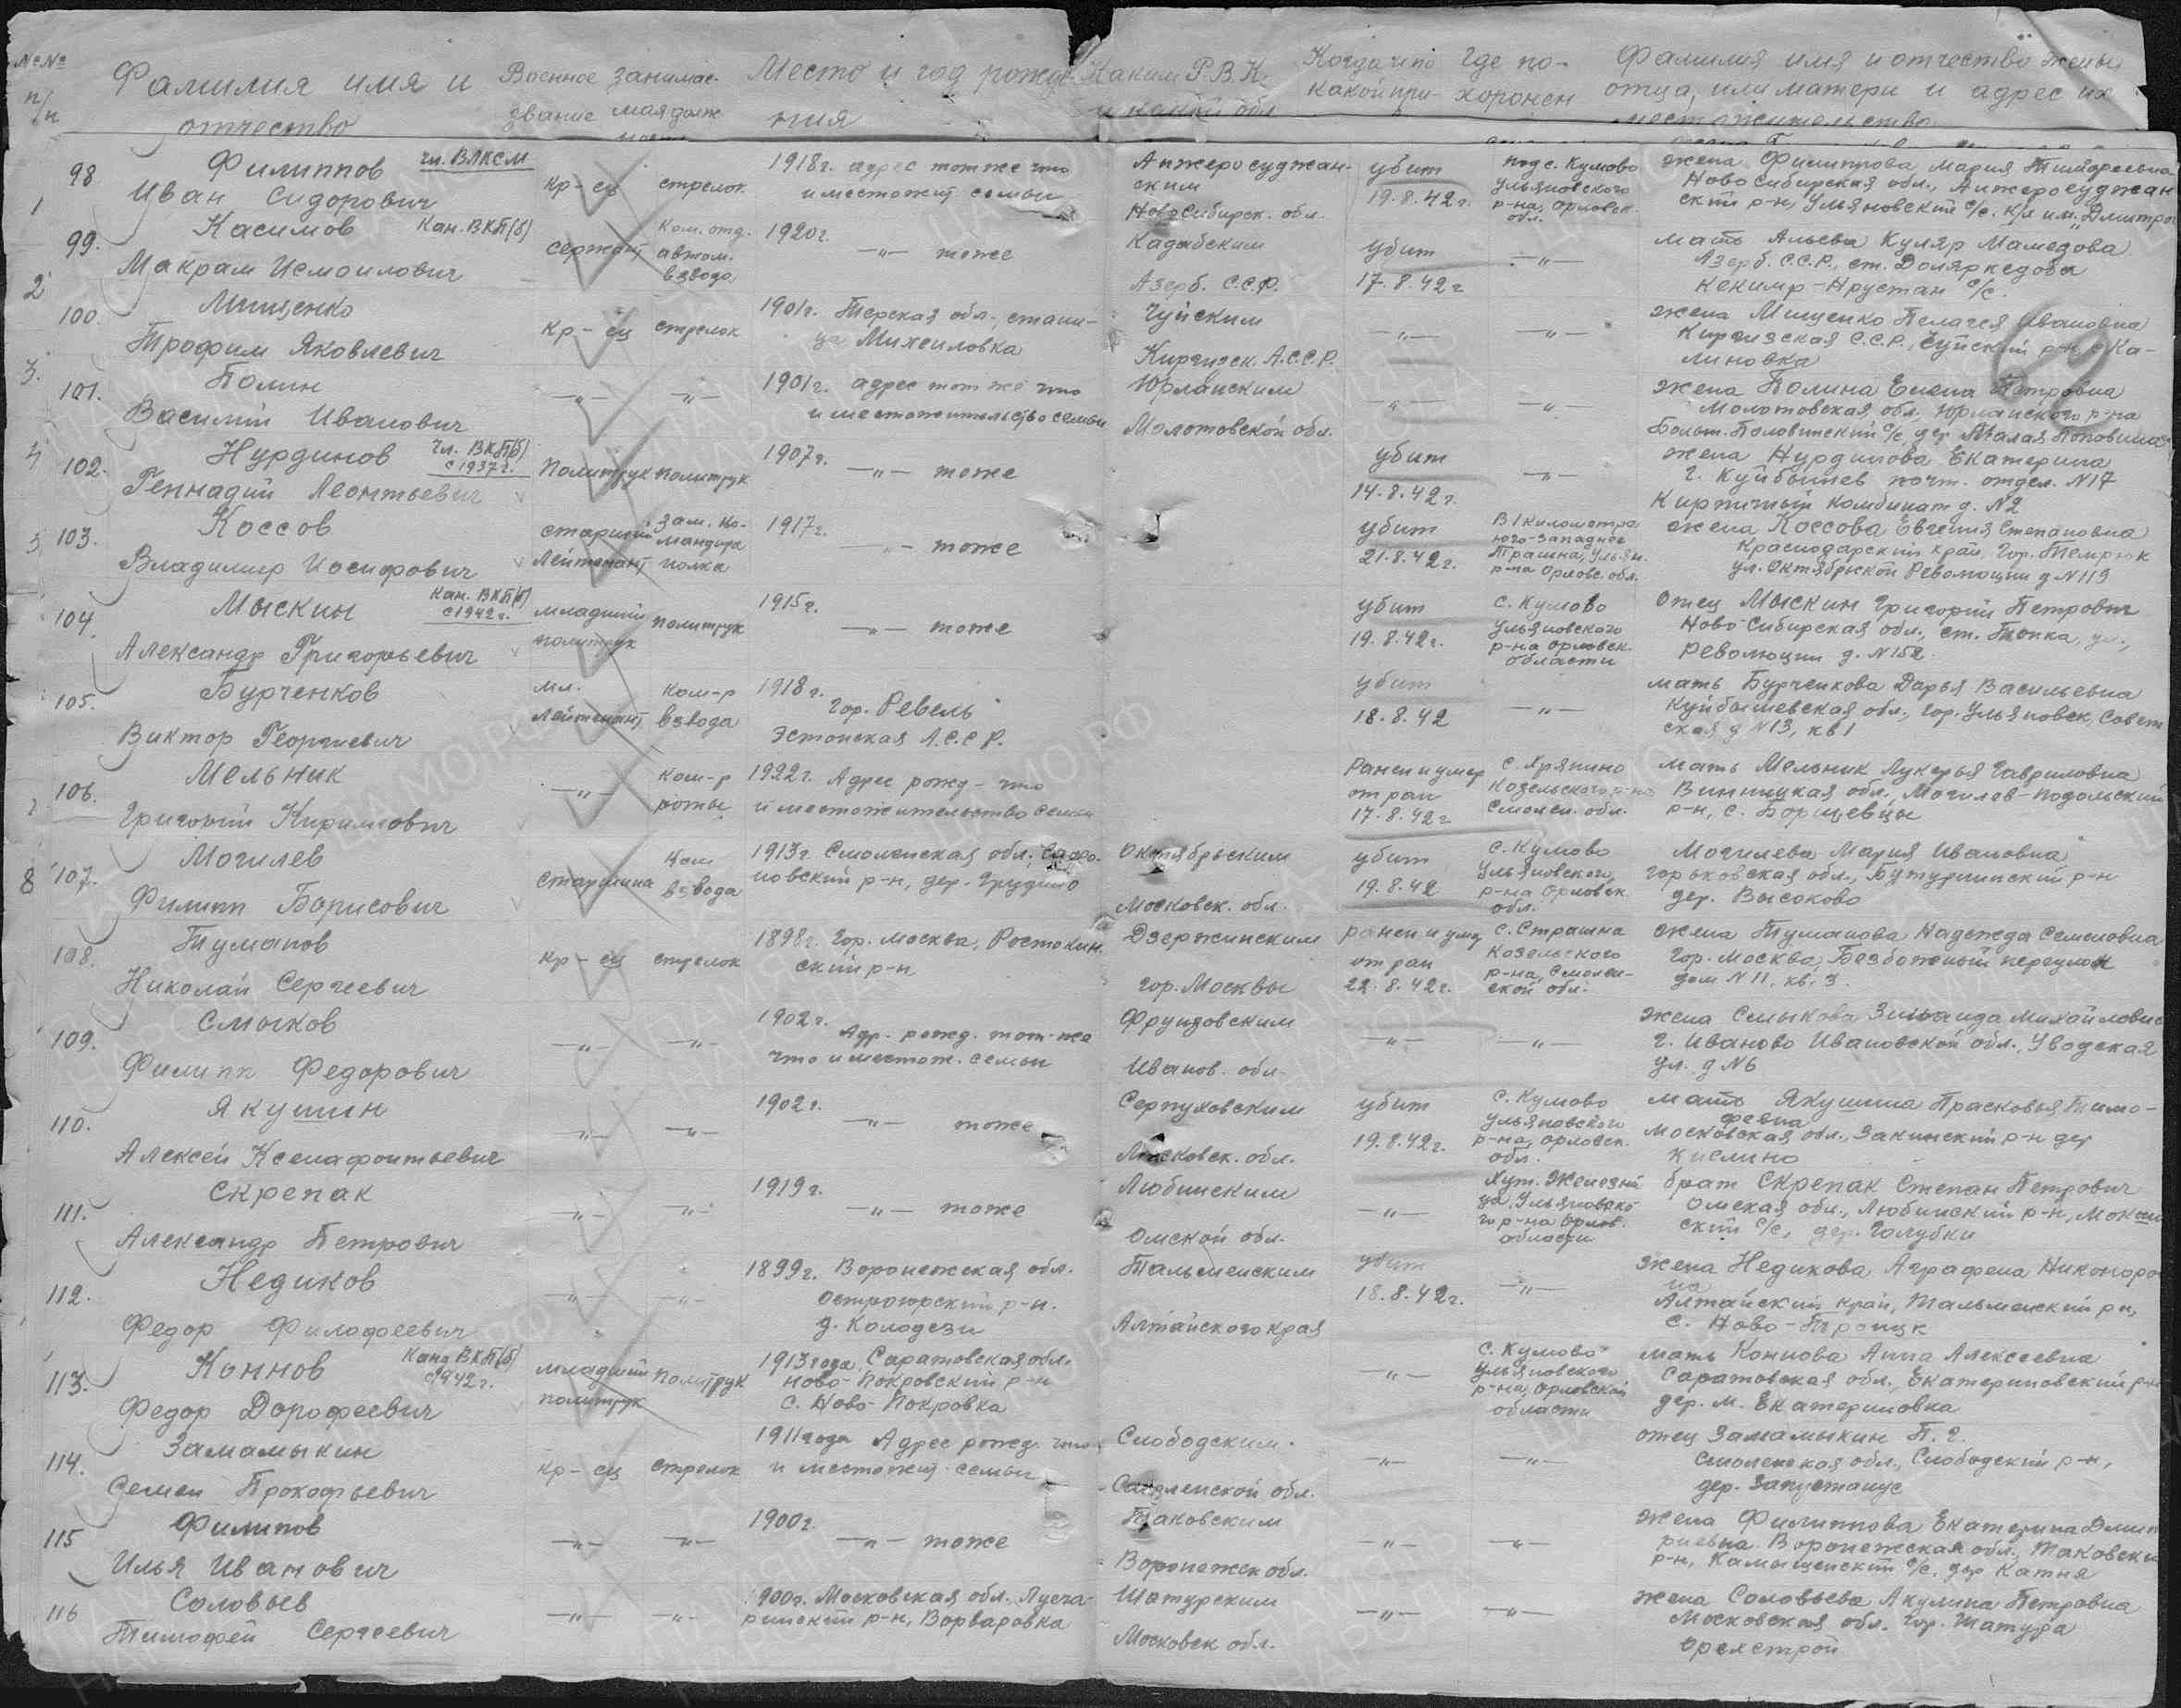 №№ п/п
Фамилия имя и отчество
Военное звание
занимаемая должность
Место и год рождения
Каким Р.В.К. и какой обл
Когда и по какой при-
Где похоронен
Фамилия имя и отчество жены отца, или матери и адрес их местожительства
98. Филиппов чл. ВЛКСМ
Иван Сидорович
Кр-ец стрелок
1918г. адрес тот же что
и местожит. семьи
Анжеросуджан-
ским
Новосибирск. обл.
убит
19.8.42г.
под с. Кумово
Ульяновского
р-на, Орловск.
обл.
жена Филиппова Мария Тимофеевна
Новосибирская обл., Анжеросуджан
ский р-н, Ульяновский с/с. к/х им. Дмитро
1
99. Касимов Кан. ВКП(б)
Макрам Исмоилович
сержант
Ком. отд.
автом.
взвода
1920г.
—"— тоже
Кадабским
Азерб. С.С.Р.
убит
17.8.42г
—"—
мать Альева Куляр Мамедова
Азерб. С.С.Р., ст. Долляркедоба
с/с.
2
100. Мищенко
Трофим Яковлевич
Кр-ец стрелок
1901г. Терская обл., стани-
ца Михаиловка
Чуйским
Киргизск. А.С.С.Р.
—"— —"—
жена Мищенко Пелагея Ивановна
Киргизская С.С.Р., Чуйский р-н, с Ка-
линовка
3.
101. Полин
Василий Иванович
—"— —"—
1901г. адрес тот же что
и местожительство семьи
Юрлинским
Молотовской обл.
—"— —"—
жена Полина Елена Петровна
Молотовская обл., Юрлинского р-на
с/с, дер Малая Половина
4
102. Нурдинов Чл. ВКП(б)
с 1937г.
Геннадий Леонтьевич
политрук политрук
1907г. —"— тоже
убит
14.8.42г.
—"—
жена Нурдинова Екатерина
г. Куйбышев почт. отдел. N17
Кирпичный комбинат д. N2
5
103. Коссов
Владимир Иосифович
старший
Лейтенант
зам. ко-
мандира
полка
1917г.
—"— тоже
убит
21.8.42г.
В 1 километра
юго-западнее
р-на Орловс. обл.
жена Коссова Евгения Степановна
Краснодарский край, гор. Темрюк
ул. Октябрьской Революции д N119
104. Мыскин Кан. ВКП(б)
с 1942г.
Александр Григорьевич
младший
политрук
политрук
1915г.
—"— тоже
убит
19.8.42г.
с. Кумово
Ульяновского
р-на Орловск.
области
отец Мыскин Григорий Петрович
Ново-Сибирская обл., ст. Топка, ул.,
Революции д. N152
105. Бурченков
Виктор Георгиевич
мл.
Лейтенант
Ком-р
взвода
1918г.
гор. Ревель
Эстонская А.С.С.Р.
убит
18.8.42
—"—
мать Бурченкова Дарья Васильевна
Куйбышевская обл., гор. Ульяновск, Совет
ская д N13, кв 1
106. Мельник
Григорий Кириллович
—"—
Ком-р
роты
1922г. Адрес рожд-что
и местожительство семьи
Ранен и умер
от ран
17.8.42г
с. Хряпино
Козельского р-на
Смолен. обл.
мать Мельник Лукерья Гавриловна
Винницкая обл., Могилев-Подольский
р-н, с. Борщевцы
107. Могилев
Филипп Борисович
старшина
Ком
взвода
1913г. Смоленская обл., Сафо-
новский р-н, дер. Грудино
Октябрьским
Московск. обл.
убит
19.8.42
с. Кумово
Ульяновского
р-на Орловск
обл.
Могилева Мария Ивановна
Горьковская обл., Бутурлинский р-н
дер. Высоково
8
108. Туманов
Николай Сергеевич
Кр-ец стрелок
1898г. гор. Москва, Ростокин
ский р-н
Дзержинским
гор. Москвы
ранен и умер
от ран
22.8.42г.
с. Страшна
Козельского
р-на, Смолен-
ской обл.
жена Туманова Надежда Семеновна
гор. Москва, Безбожный переулок
дом N11. кв. 3.
109. Смыков
Филипп Федорович
—"— —"—
1902г. Адр. рожд. тот-же
что и местож. семьи
Фрунзовским
Иванов. обл.
—"— —"—
жена Смыкова Зинаида Михайловн
г. Иваново Ивановской обл., Уводская
ул. д N6
110. Якушин
Алексей Ксенафонтьевич
—"— —"—
1902г.
—"— тоже
Серпуховским
Московск. обл.
убит
19.8.42г.
с. Кумово
Ульяновского
р-на, Орловск.
обл.
мать Якушина Прасковья Тимо-
феевна
Московская обл., р-н дер
Кислино
111. Скрепак
Александр Петрович
—"— —"—
1919г.
—"— тоже
Любинским
Омской обл.
—"—
Хут. Железни
ца, Ульяновско
го р-на Орлов.
области
брат Скрепак Степан Петрович
Омская обл., Любинский р-н,
ский с/с, дер. Голубки
112. Недиков
Федор Филофеевич
—"— —"—
1899г. Воронежская обл.
Острогорский р-н.
д. Колодези
Тальменским
Алтайского края
убит
18.8.42г.
—"—
жена Недикова Аграфена Никоноро
на
Алтайский край, Тальменский р-н,
с. Ново-Троицк
113. Коннов Канд ВКП(б)
с 1942г.
Федор Дорофеевич
младший
политрук
политрук
1913 года Саратовская обл.
Ново-Покровский р-н
с. Ново-Покровка
—"—
с. Кумово
Ульяновского
р-на, Орловской
области
мать Коннова Анна Алексеевна
Саратовская обл., Екатериновский р-н
дер. М. Екатериновка
114. Замамыкин
Семен Прокофьевич
Кр-ец стрелок
1911 года Адрес рожд. что
и местожит. семьи
Слободским.
Смоленской обл.
—"— —"—
отец Замамыкин П. Г.
Смоленская обл., Слободский р-н,
дер.
115 Филипов
Илья Иванович
—"— —"—
1900г.
—"— тоже
Таковским
Воронежск обл.
—"— —"—
жена Филиппова Екатерина Дмит
риевна Воронежская обл., Таковски
р-н, Камышенский с/с. дер Катня
116 Соловьев
Тимофей Сергеевич
—"— —"—
1900г. Московская обл.
р-н, Ворваровка
Шатурским
Московск обл.
—"— —"—
жена Соловьева Акулина Петровна
Московская обл. гор. Шатура